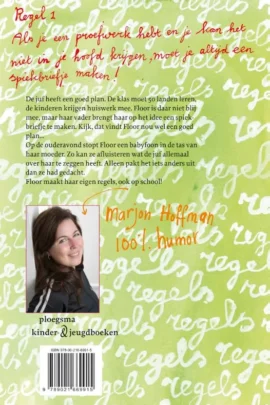 Regel 1
Als je een proefwerk hebt en je kan het
niet in je hoofd krijgen, moet je altyd een
spiekbriefje maken!
De juf heeft een goed plan. De klas moet 50 landen leren.
de kinderen krijgen huiswerk mee. Floor is daar niet blij
mee, maar haar vader brengt haar op het idee een spiek
briefje te maken. Kijk, dat vindt Floor nou wel een goed
plan...
Op de ouderavond stopt Floor een babyfoon in de tas van
haar moeder. Zo kan ze afluisteren wat de juf allemaal
over haar te zeggen heeft. Alleen pakt het iets anders uit
dan ze had gedacht.
Floor maakt haar eigen regels, ook op school!
Marjon Hoffman
100% humor
ploegsma
kinder & jeugdboeken
regels